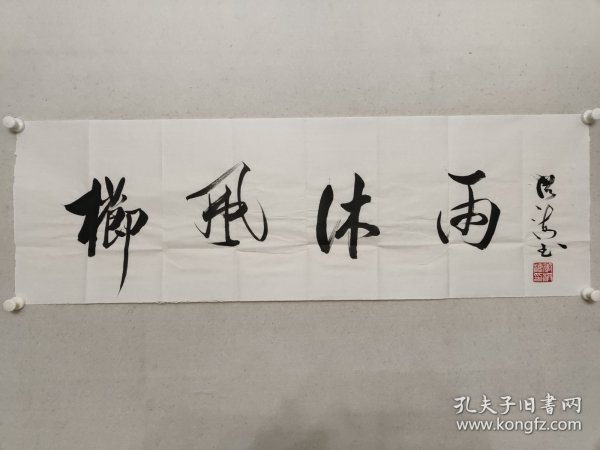 櫛风沐雨
书
孔夫子旧书网
www.kongfz.com